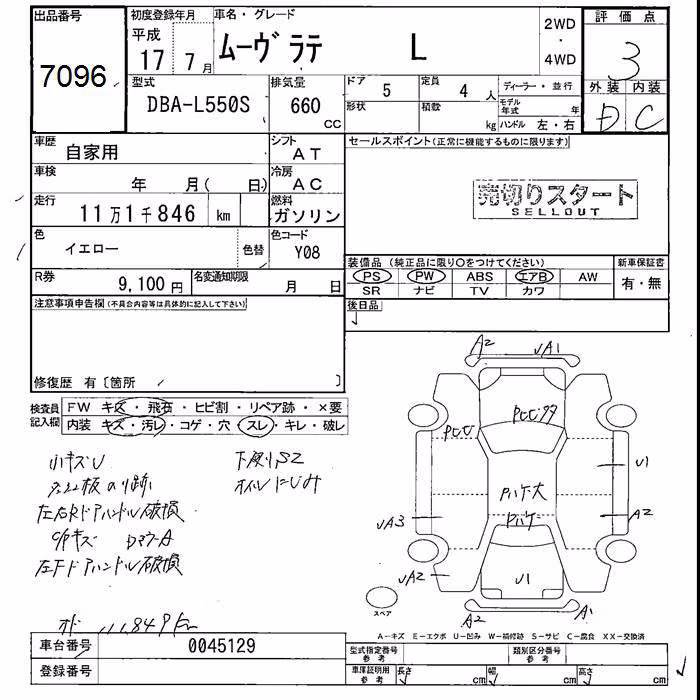 出品番号
7096
初度登録年月
平成
17 7月
車名・グレード
ムーヴ ラテ L
2WD
・
4WD
評価点
3
外装 内装
D C
型式
DBA-L550S
排気量
660 CC
ドア 5
定員 4 人
ディーラー・並行
形状
積載 kg
モデル年式 年
ハンドル 左・右
車歴
自家用
シフト
AT
セールスポイント(正常に機能するものに限ります)
車検
年 月( 日)
冷房
AC
売切りスタート
SELLOUT
走行
11万1千846 km
燃料
ガソリン
色
イエロー
色替
色コード
Y08
装備品(純正品に限り○をつけてください)
新車保証書
PS PW ABS エアB AW
有・無
SR ナビ TV カワ
R券
9,100円
名変通知期限
月 日
注意事項申告欄(不具合内容等は具体的に記入して下さい)
後日品
修復歴 有〔箇所 〕
検査員記入欄
FW キズ・飛石・ヒビ割・リペア跡・×要
内装 キズ・汚レ・コゲ・穴・スレ・キレ・破レ
小キズU
下廻りSZ
オイルにじみ
左右Rドアハンドル破損
左Fドアハンドル破損
A2
A1
PCC
U1
A3
A2
A2
U1
A2
A1
スペア
A-キズ E-エクボ U-凹み W-補修跡 S-サビ C-腐食 XX-交換済
車台番号
0045129
型式指定番号
参考
類別区分番号
参考
登録番号
車庫証明用
参考
長さ cm
幅 cm
高さ cm